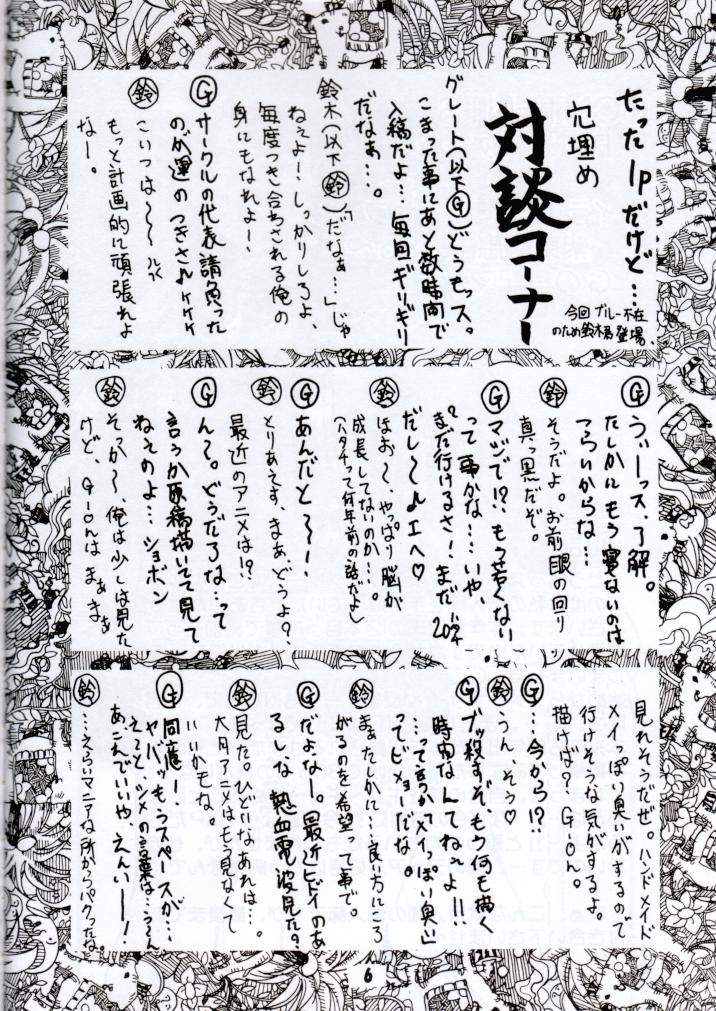 たった1pだけど…
穴埋め
対談コーナー
今回ブルー不在
のため鈴木君登場
グレート(以下Ⓖ)どうもッス。
こまった事にあと数時間で
入稿だよ…毎回ギリギリ
だなぁ…。
鈴木(以下㊕鈴)「だなぁ…」じゃ
ねぇよ!しっかりしろよ、
毎度つき合わされる俺の
身にもなれよー!
Ⓖ サークルの代表請負った
のが運のつきさ♪ケケケ
鈴 こいつは〜〜
もっと計画的に頑張れよ
なー。
Ⓖ うぃーっス、了解。
たしかにもう寝ないのは
つらいからな…
鈴 そうだよ。お前眼の回り
真っ黒だぞ。
Ⓖ マジで!?もう若くない
って事かな……いや、
まだ行けるさ!まだハタチ
だし〜♪エヘ♡
鈴 はぁ〜、やっぱり脳が
成長してないのか…。
(ハタチって何年前の話だよ)
Ⓖ あんだと〜!
鈴 とりあえず、まあどうよ?
最近のアニメは!?
Ⓖ ん〜。どうだろな…って
言うか原稿描いてて見て
ねぇのよ…ショボン
鈴 そっか〜、俺は少しは見た
けど、G-onはまぁまぁ
見れそうだぜ。ハンドメイド
メイっぽい臭いがするので
行けそうな気がするよ。
描けば?G-on。
Ⓖ …今から!?
鈴 うん、そう♡
Ⓖ ブッ殺すぞ、もう何も描く
時間なんてねーよ!!
…って言うか“メイっぽい臭い”
ってビミョーだな。
鈴 まぁたしかに…良い方にころ
がるのを希望って事で。
Ⓖ だよなー。最近ヒドイのあ
るしな、熱血電波見た?
鈴 見た。ひどいなあれは…。
大月アニメはもう見なくて
いいかもな。
Ⓖ 同感ー、
ヤバッもうスペースが…
えーと、シメの言葉は…〜
あこんでいいや、えんいー!
鈴 …えらいマニアな所からパクったね。
6